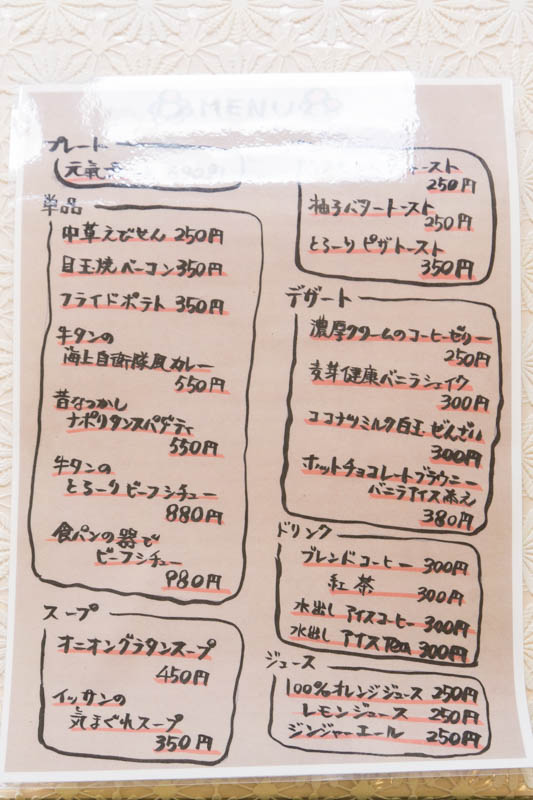 MENU
プレート
元氣
単品
中華えびせん 250円
目玉焼ベーコン 350円
フライドポテト 350円
牛タンの
海上自衛隊風カレー
550円
昔なつかし
ナポリタンスパゲティ
550円
牛タンの
とろーりビーフシチュー
880円
食パンの器で
ビーフシチュー
980円
スープ
オニオングラタンスープ
450円
イッサンの
気まぐれスープ
350円
トースト
250円
柚子バタートースト
250円
とろーりピザトースト
350円
デザート
濃厚クリームのコーヒーゼリー
250円
麦芽健康バニラシェイク
300円
ココナツミルク白玉ぜんざい
300円
ホットチョコレートブラウニー
バニラアイス添え
380円
ドリンク
ブレンドコーヒー 300円
紅茶 300円
水出し アイスコーヒー 300円
水出し アイスTea 300円
ジュース
100%オレンジジュース 250円
レモンジュース 250円
ジンジャーエール 250円